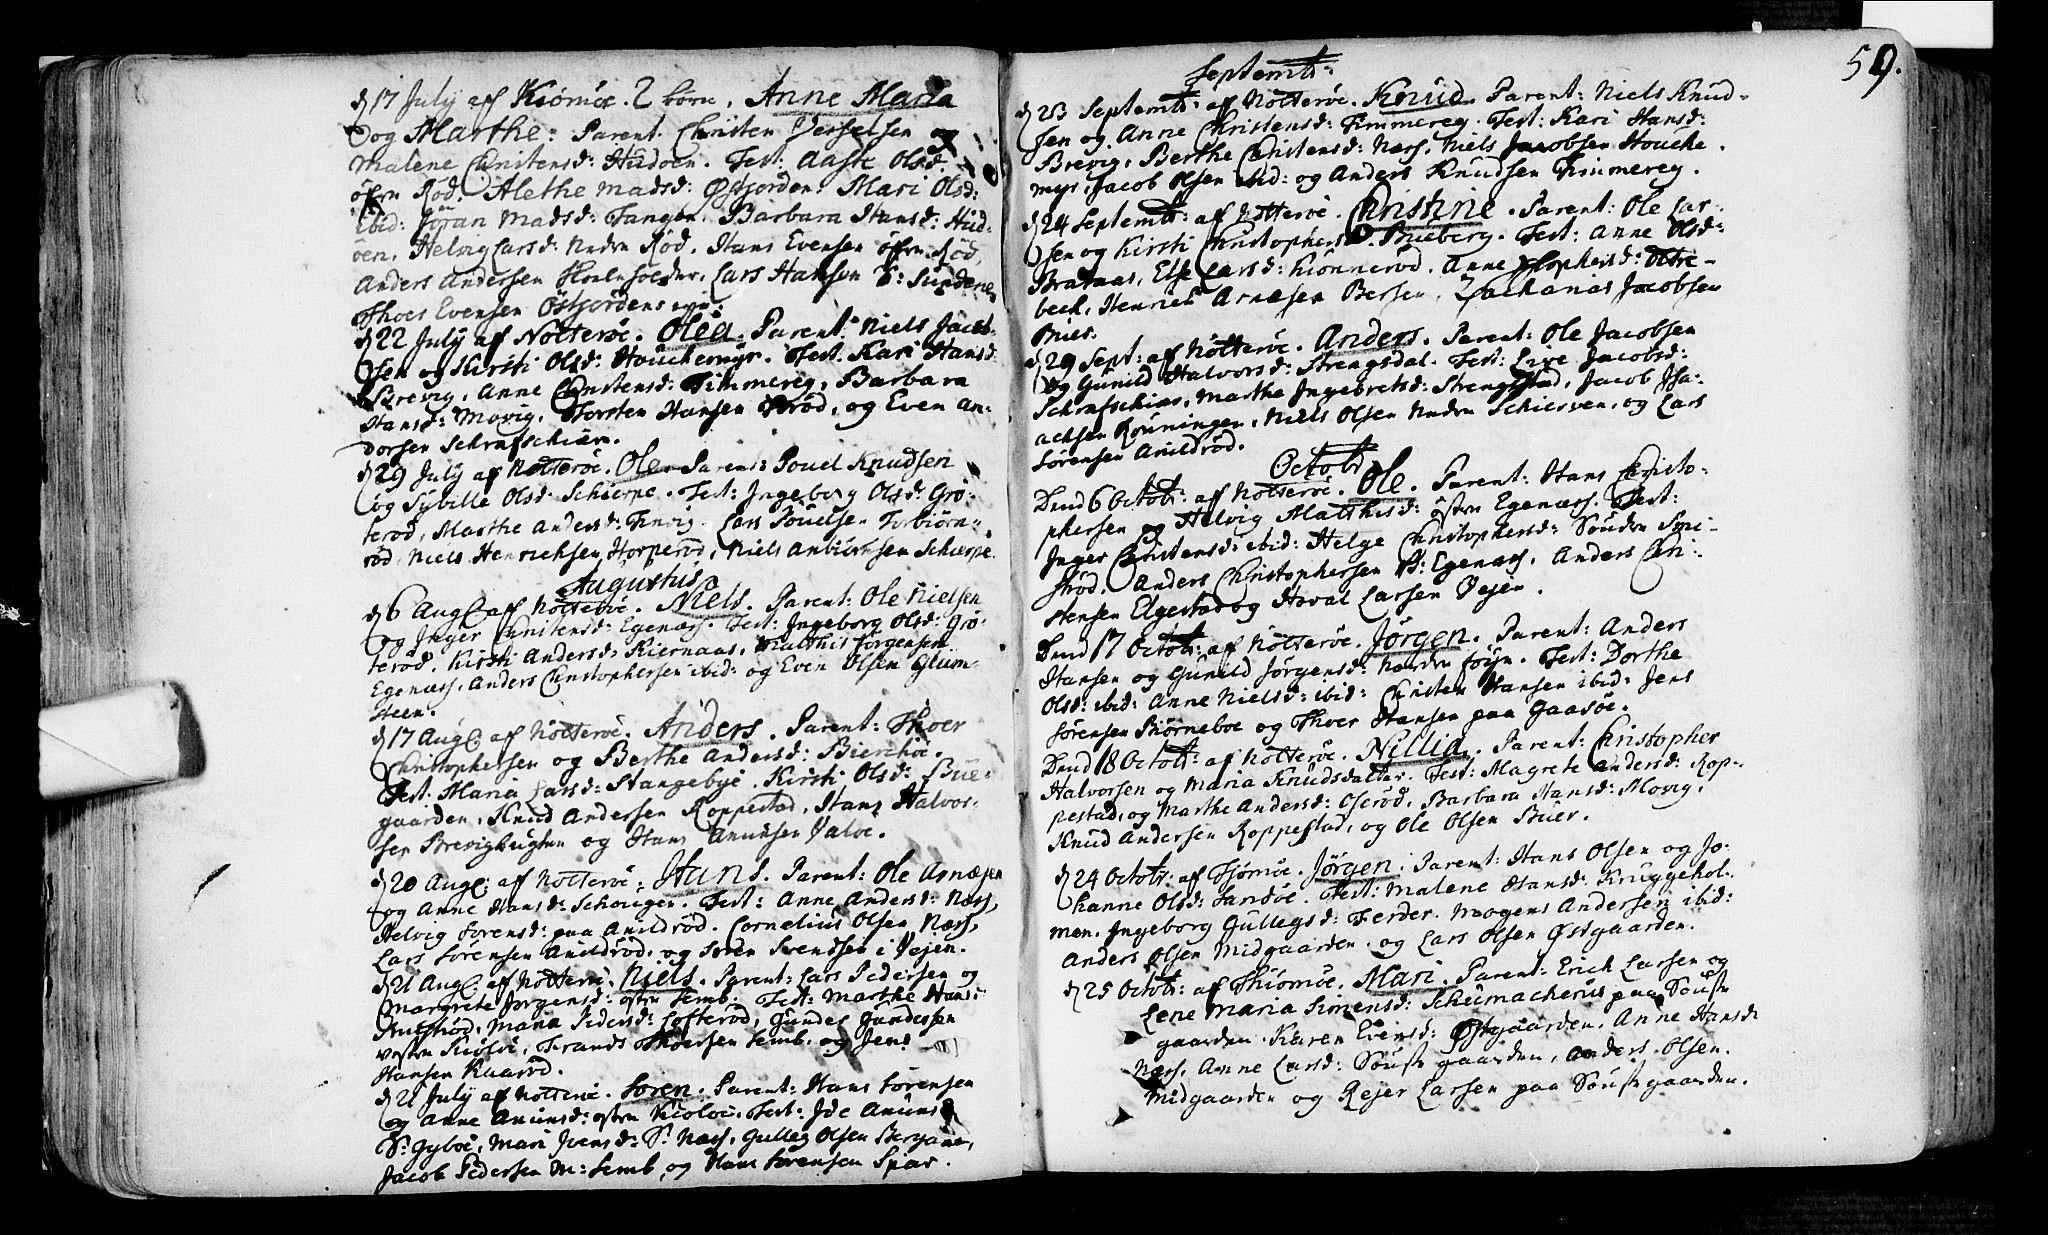 d 17 July af Kiömöe. 2 börn, Anne Maria
og Marthe: Parent. Christen Jesselsen og
Malene Christensd: Hudöen. Test: Aaste Olsd:
öfre Röd. Alethe Madsd: Östjorden. Mari Olsd:
ibid: Jöran Madsd: Tangen. Barbara Hansd: Hud-
öen, Helvig Larsd: Nedre Röd. Hans Evensen öfre Röd,
Anders Andersen Holmsolder, Lars Hansen S: Sundene
Thoer Evensen Östjordens eÿe.
d 22 July af Nötteröe. Olea. Parent: Niels Jacob-
sen og Kirsti Olsd: Houchemyr. Test. Kari Hansd:
Brevig, Anne Christensd: Fimmereg, Barbara
Hansd: Movig, Torsten Hansen röd, og Even An-
dersen Schrafschiær.
d 29 July af Nötteröe. Ole. Parent: Pouel Knudsen
og Sybille Olsd: Schierpe. Test: Ingeborg Olsd: Grö-
teröd, Marthe Andersd: Finvig. Lars Pouelsen Torbiörn-
röd, Niels Henrichsen Horperöd, Niels Anbiörnsen Schierpe.
Augustus
d 6 Aug: af Nötteröe. Niels. Parent: Ole Nielsen
og Inger Christensd: Egenæss. Test: Ingeborg Olsd: Grö-
teröd. Kirsti Andersd: Kiernaas, Matthis Jörgensen
Egenæss, Anders Christophersen ibid: og Even Olsen Glom-
steen.
d 17 Aug: af Nötteröe. Anders. Parent: Thoer
Christophersen og Berthe Andersd: Bierchöe.
Test: Maria Larsd: Stangebye. Kirsti Olsd: Bue-
gaarden, Knud Andersen Roppestad, Hans Halvor-
sen Brevigbugten og Hans Amunsen Valöe.
d 20 Aug: af Nötteröe: Hans. Parent: Ole Arnesen
og Anne Hansd: Schouger. Test: Anne Andersd: Næss,
Helvig Sörensd: paa Anildröd. Cornelius Olsen Næss,
Lars Sörensen Anildröd, og Sören Svendsen i Vejen.
d 21 Aug: af Nötteröe. Niels. Parent: Lars Pedersen og
Margrete Jörgensd: östre Semb. Test: Marthe Hansd:
röd, Maria Pedersd: Lofteröd, Gunder Gundersen
vestre Kiölöe, Frands Thoersen Semb, og Jens
Hansen Kaaröd.
d 21 July af Nötteröe. Sören. Parent: Hans Sörensen
og Anne Amunsd: östre Kiölöe. Test: Ide Amunsd
S: Gyböe, Mari Iversd: S: Næss, Gulleg Olsen Bergane,
Jacob Pedersen M: Semb, og Hans Sörensen Spar.
59.
Septembr:
d 23 Septembr: af Nötteröe. Knud. Parent: Niels Knud-
sen og Anne Christensd: Fimmereg. Test: Kari Hansd:
Brevig, Berthe Christensd: Næss, Niels Jacobsen Houche-
myr, Jacob Olsen ibid: og Anders Knudsen Fimmereg.
d 24 Septembr: af Nötteröe. Christine. Parent: Ole Lar-
sen og Kirsti Christophersd: Bueberg. Test: Anne Olsd:
Brataas, Else Larsd: Kiönneröd. Anne Stophersd: Oltre-
beck, Henrich Arnesen Bersen, Zacharias Jacobsen
Mies.
d 29 Sept: af Nötteröe. Anders. Parent: Ole Jacobsen
og Gunild Halvorsd: Strengsdal. Test: Live Jacobsd:
Schrafschiær, Marthe Ingebretsd: Strengstad, Jacob Isa-
achsen Röuningen, Niels Olsen Nedre Schiersven, og Lars
Sörensen Anildröd.
Octobr
Dend 6 Octobr: af Nötteröe. Ole. Parent: Hans Christo-
phersen og Helvig Matthisd: östre Egenæss. Test:
Inger Christensd: ibid: Helge Christophersd: Söndre Smi-
dröd. Anders Christophersen S: Egenæss, Anders Chri-
stensen Elgestad og Hoval Larsen Vejen.
Dend 17 Octobr: af Nötteröe. Jörgen. Parent: Anders
Hansen og Gunild Jörgensd: Nordre Föyn. Test: Dorthe
Olsd: ibid: Anne Nielsd: ibid: Christen Hansen ibid: Jens
Sörensen Biörneboe og Thoer Hansen paa Gaasöe.
Dend 18 Octobr: af Nötteröe. Nillia. Parent: Christopher
Halvorsen og Maria Knudsdatter. Test: Magrete Andersd: Rop-
pestad, og Marthe Andersd: Oseröd, Barbara Hansd: Movig,
Knud Andersen Roppestad, og Ole Olsen Buer.
d 24 Octobr: af Tjömöe. Jörgen. Parent: Hans Olsen og Jo-
hanne Olsd: Sandöe. Test: Malene Hansd: Kruggehol-
men. Ingeborg Gullegsd: Ferder. Mogens Andersen ibid:
Anders Olsen Midgaarden. og Lars Olsen Östgaarden.
d 25 Octobr: af Thiömöe. Mari. Parent: Erich Larsen og
Lene Maria Simensd: Schumacherus paa Söustr
gaarden. Karen Evensd: Östgaarden. Anne Hansd:
Næss. Anne Larsd: Söustr gaarden, Anders Olsen.
Midgaarden og Rejer Larsen paa Söustr gaarden.